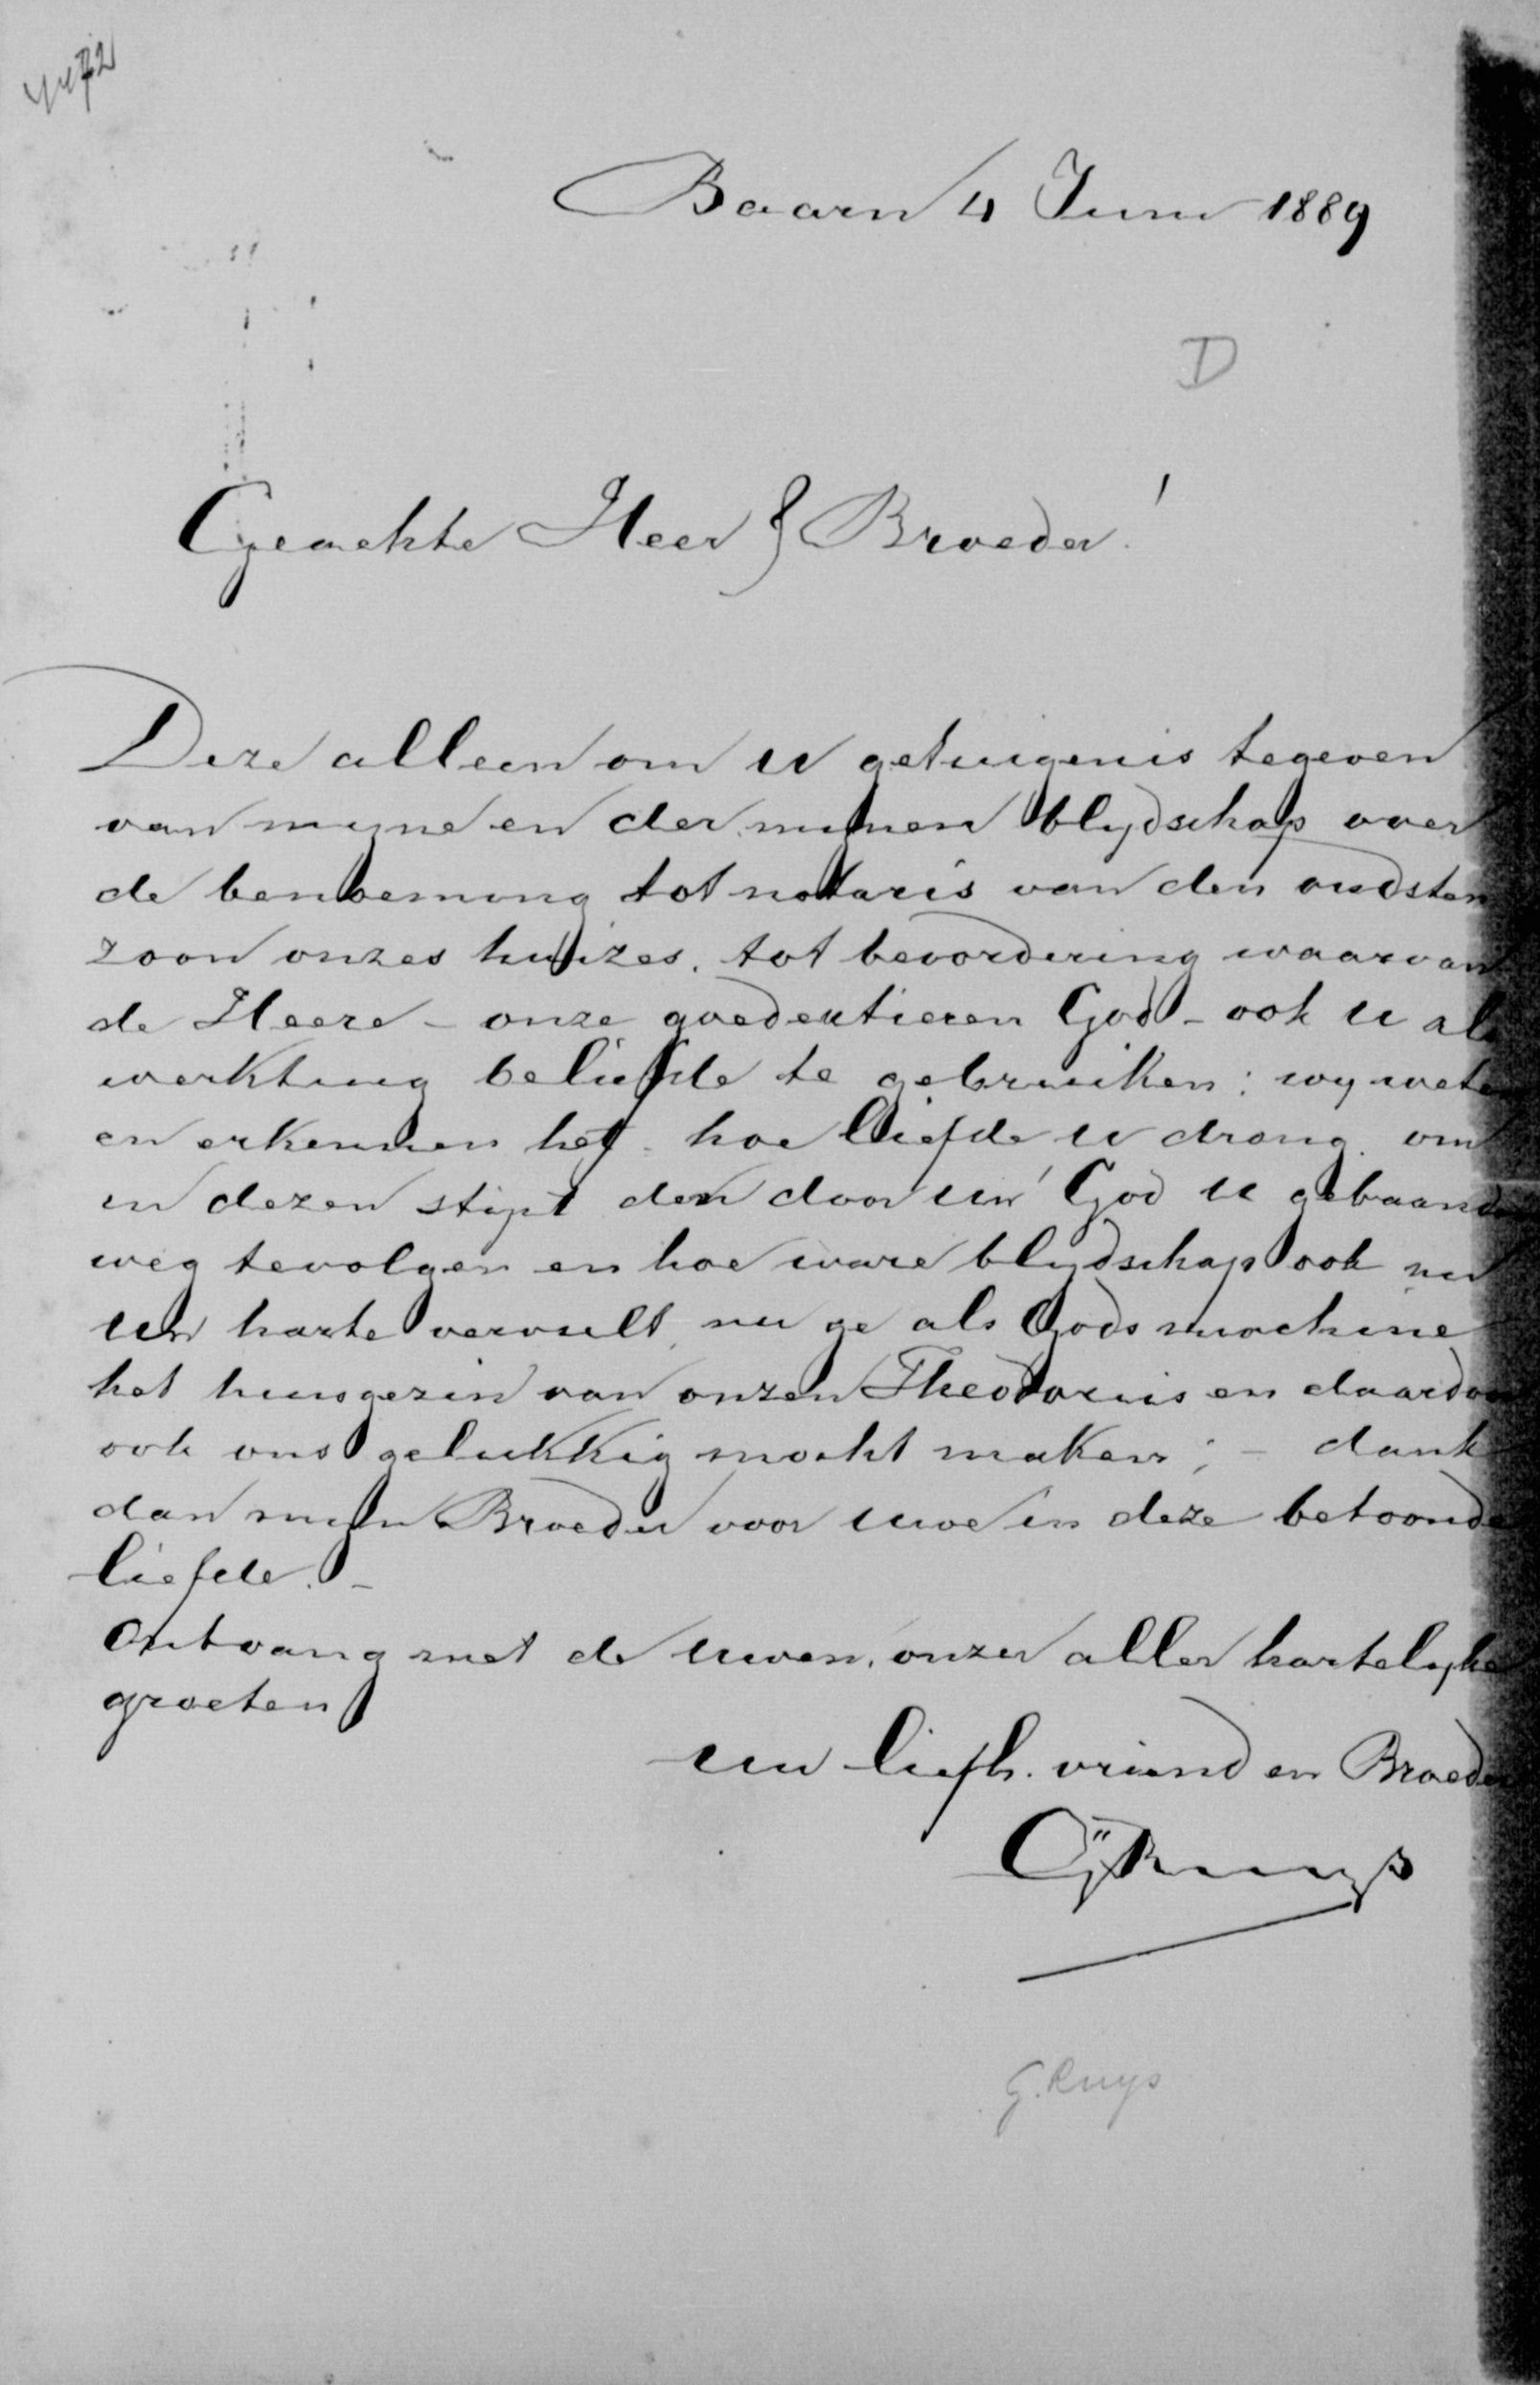 4472
Baarn 4 Juni 1889
D
Geachte Heer & Broeder!
Deze alleen om U getuigenis tegeven
van myne en der mynen blydschap over
de benoeming tot notaris van den oudsten
zoon onzes huizes. tot bevordering waarvan
de Heere - onze goedertieren God - ook U als
werktuig beliefde te gebruiken: wy weten
en erkennen het hoe liefde U drong om
in dezen stipt den door Uw God U gebaanden
weg tevolgen en hoe ware blydschap ook nu
Uw harte vervult, nu ge als Gods machine
het huisgezin van onzen Theodorus en daardoor
ook ons gelukkig mocht maken; - dank
dan myn Broeder voor uwe in deze betoonde
liefde. -
Ontvang met de uwen, onzer aller hartelyke
groeten
uw liefh. vriend en Broeder
G Ruys
G. Ruys